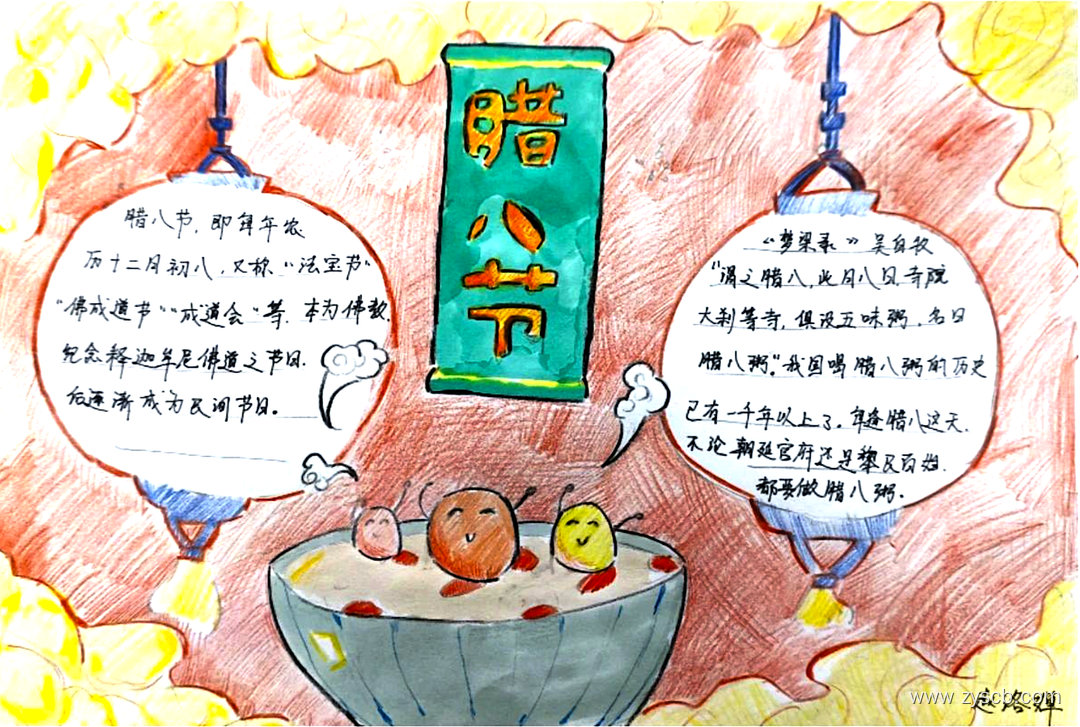 腊八节
腊八节，即每年农
历十二月初八，又称“法宝节”
“佛成道节”“成道会”等．本为佛教
纪念释迦牟尼佛道之节日．
后逐渐成为民间节日。
“梦梁录”吴自牧
“谓之腊八，此月八日寺院
大刹等寺，俱设五味粥．名曰
腊八粥”．我国喝腊八粥的历史
已有一千年以上了．每逢腊八这天．
不论朝廷官府还是黎民百姓．
都要做腊八粥．
www.zyscb.com